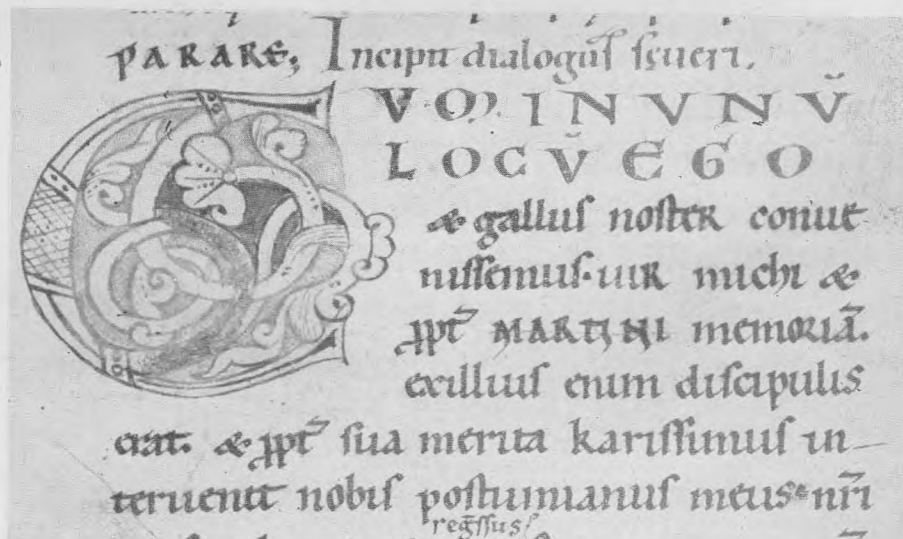 PARARE; Incipit dialogus seueri.
CVM INVNŪ
LOCV̄ EGO
& gallus noster conue
nissemus. uir michi &
ꝓpt̄ MARTINI memoriā.
exillius enim discipulis
erat. & ꝓpt̄ sua merita karissimus in-
teruenit nobis postumianus meus. nr̄i
reḡssus